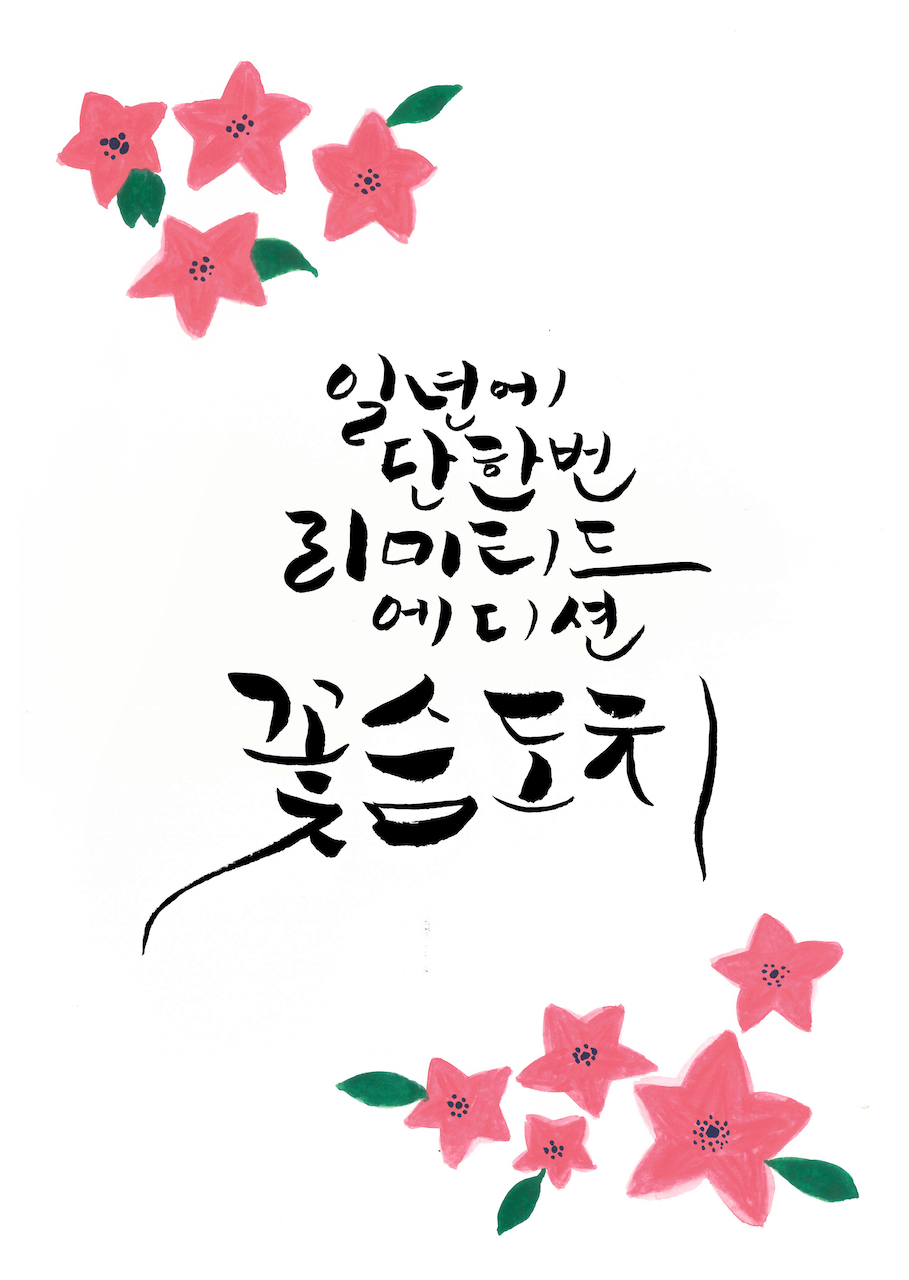 일년에
단한번
리미티드
에디션
꽃슴도치